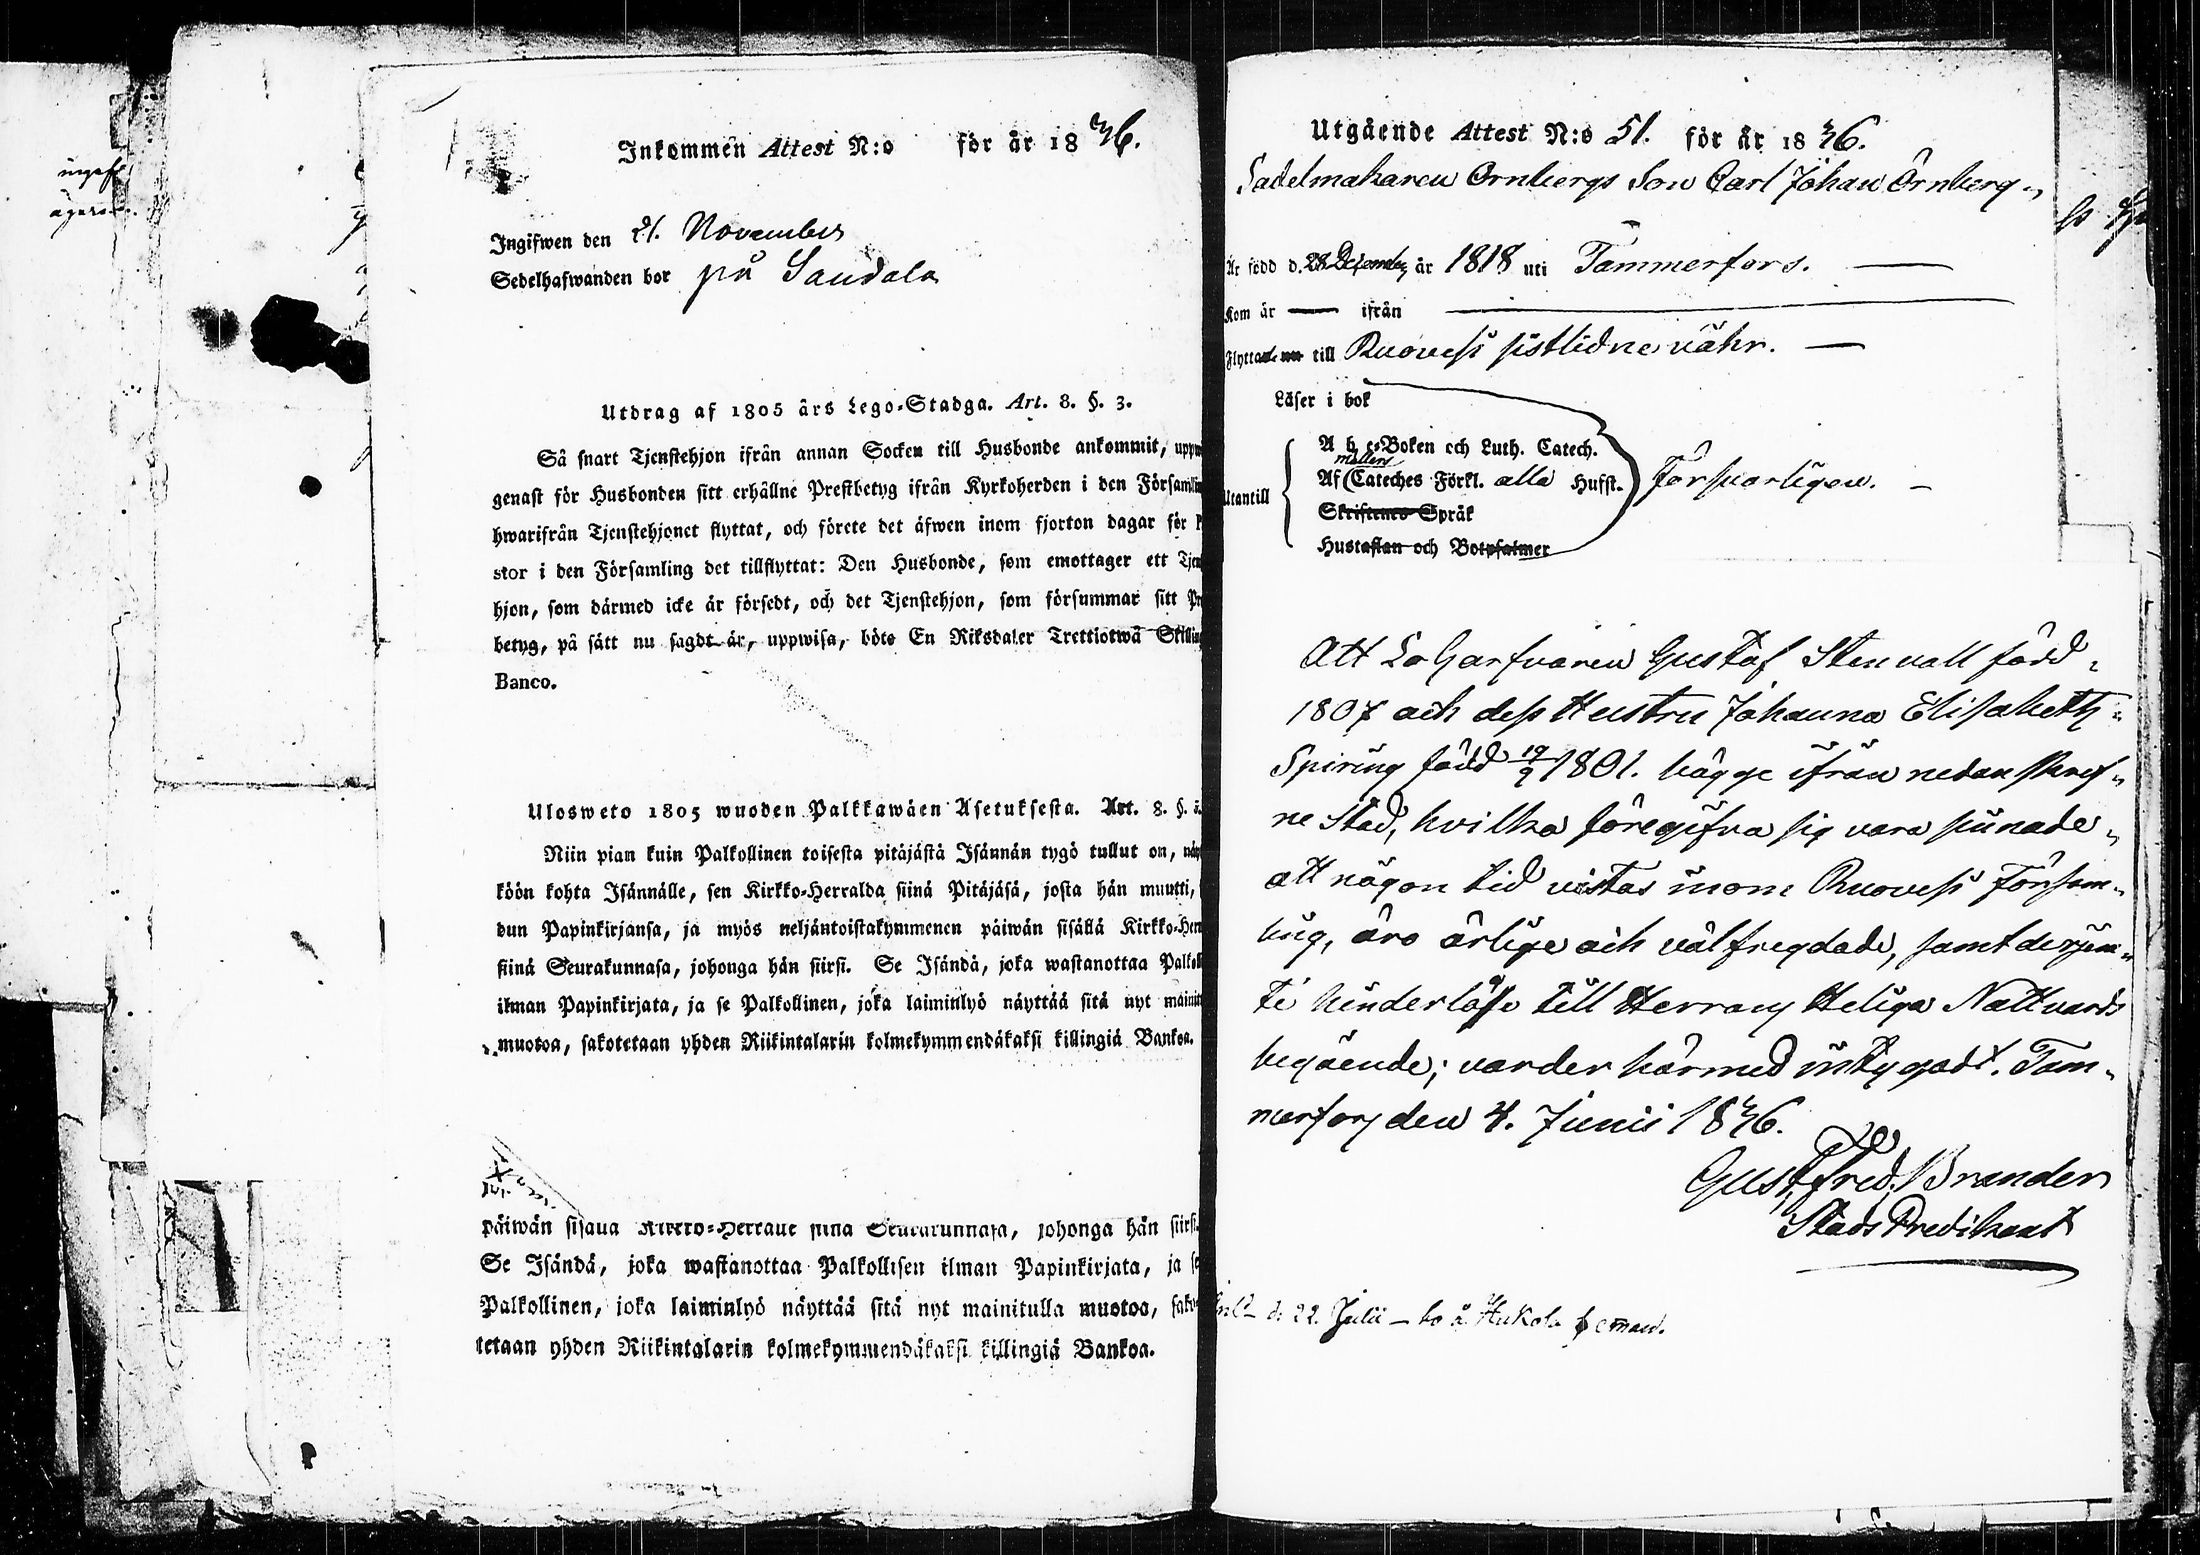 Inkommen Attest N:o för år 1836.
Ingifwen den 21. November
Sedelhafwanden bor på Saudala
Utdrag af 1805 års Lego-Stadga. Art. 8. §. 3.
Så snart Tjenstehjon ifrån annan Socken till Husbonde ankommit,
genast för Husbonden sitt erhållne Prestbetyg ifrån Kyrkoherden i den
hwarifrån Tjenstehjonet flyttat, och förete det äfwen inom fjorton dagar för
stor i den Församling det tillflyttat: Den Husbonde, som emottager ett
hjon, som därmed icke är försedt, och det Tjenstehjon, som försummar sitt
betyg, på sätt nu sagdt är, uppwisa, böte En Riksdaler Trettiotwå
Banco.
Ulosweto 1805 wuoden Palkkawäen Asetuksesta. Art. 8. §.
Niin pian kuin Palkollinen toisesta pitäjästä Isännän tygö tullut on,
köön kohta Isännälle, sen Kirkko-Herralda siinä Pitäjäsä, josta hän muutti,
dun Papinkirjansa, ja myös neljäntoistakymmenen päiwän sisällä
siinä Seurakunnasa, johonga hän siirsi. Se Isändä, joka wastanottaa
ilman Papinkirjata, ja se Palkollinen, joka laiminlyö näyttää sitä nyt
muotoa, sakotetaan yhden Riikintalarin kolmekymmendäkaksi killingiä Bankoa.
päiwän johonga hän
Se Isändä, joka wastanottaa Palkollisen ilman Papinkirjata, ja
Palkollinen, joka laiminlyö näyttää sitä nyt mainitulla muotoa,
tetaan yhden Riikintalarin kolmekymmendäkaksi killingiä Bankoa.
Utgående Attest N:o 51. för år 1836.
Sadelmakaren Örnbergs Son Carl Johan Örnberg
Är född d. 28 December år 1818 uti Tammerfors.
Kom år — ifrån
Flyttade nu till Ruovesi sistlidne våhr.
Läser i bok
A b c-Boken och Luth. Catech.
Af Möllers Cateches Förkl. alla Hufst. Försvarligen.
Utantill
Skriftenes Språk
Hustaflan och Botpsalmer
Att Logarfvaren Gustaf Stenvall född
1807 och dess Hustru Johanna Elisabeth
Spiring född 19/9 1801. bägge ifrån nedanskref-
ne Stad, hvilka föregifva sig vara sinnade
att någon tid vistas inom Ruovesi Försam-
ling, äro ärlige och välfregdade, samt derjem-
te hinderlöse till Herrans Heliga Nattvards
begående; varder härmed intygadt. Tam-
merfors den 4. Junii 1836.
Gust. Fred. Brander
Stads Predikant
d. 22. Julii — bo å Hukola